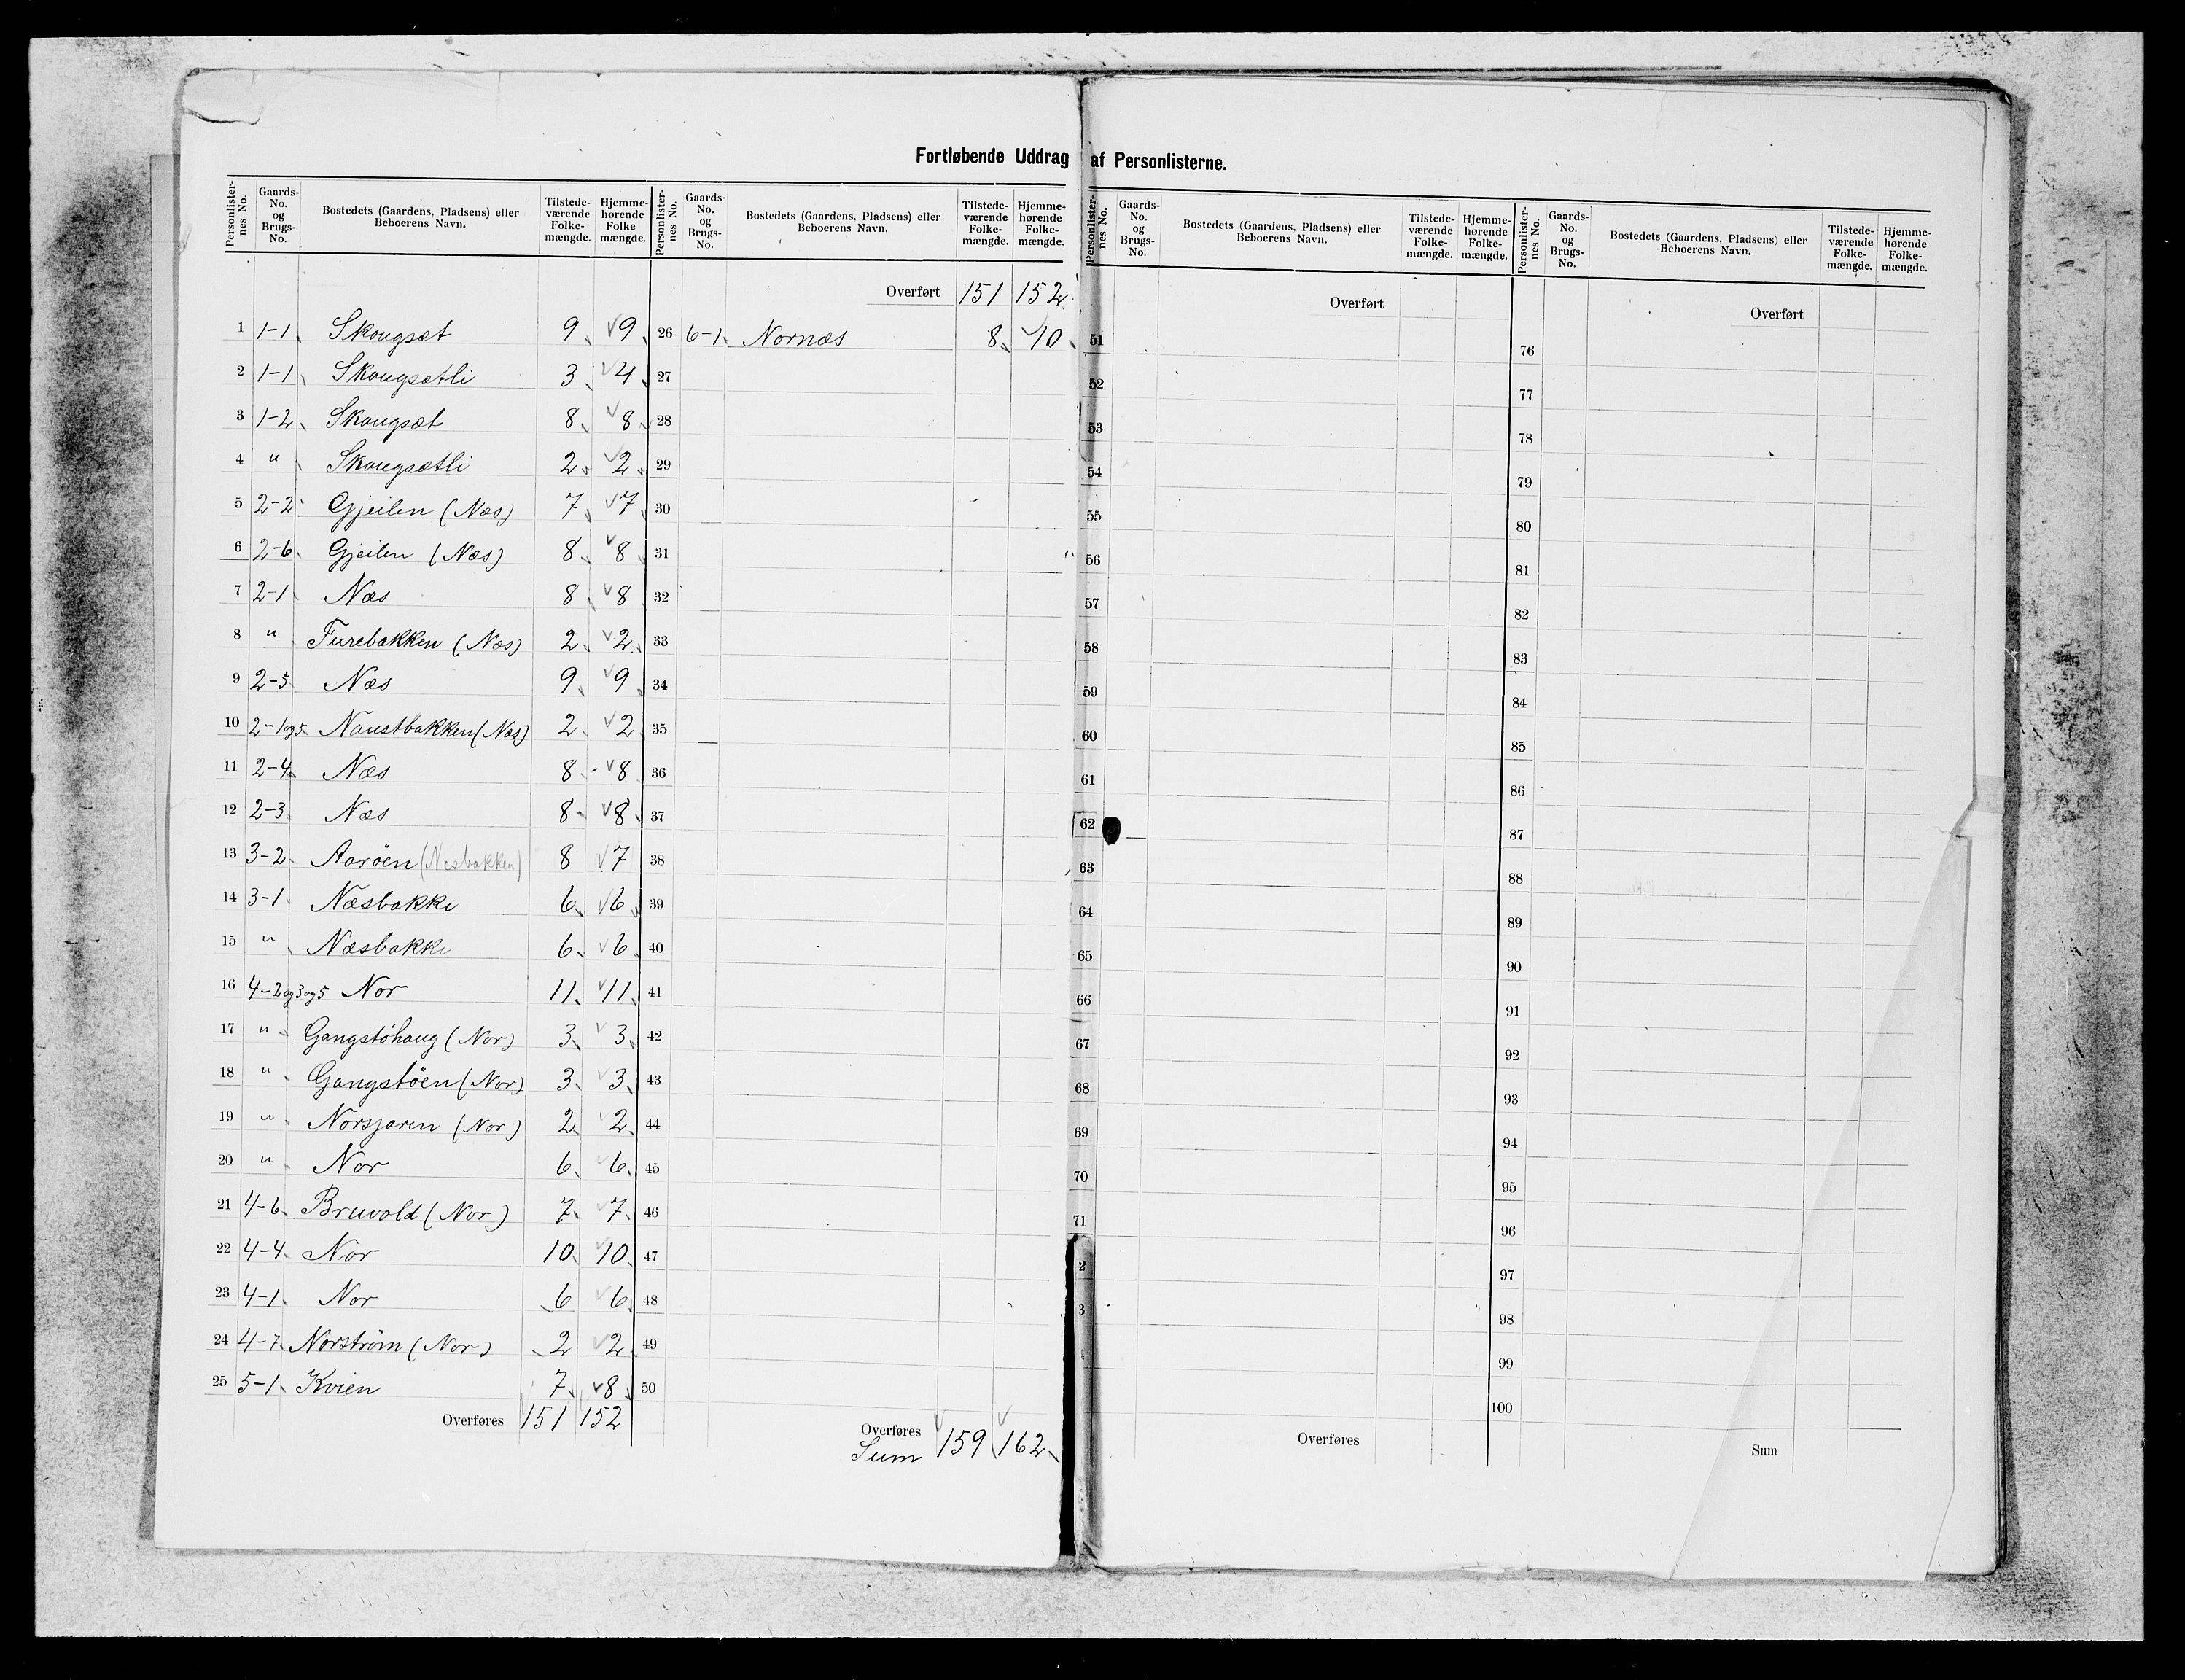 Fortløbende Uddrag af Personlisterne.
Personlister-nes No. Gaards-No. og Brugs-No. Bostedets (Gaardens, Pladsens) eller Beboerens Navn. Tilstede-værende Folke-mængde. Hjemme-hørende Folke mængde.
1 1-1 Skougsæt 9 9
2 1-1 Skougsætli 3 4
3 1-2 Skougsæt 8 8
4 " Skougsætli 2 2
5 2-2 Gjeilen (Næs) 7 7
6 2-6 Gjeilen (Næs) 8 8
7 2-1 Næs 8 8
8 " Furebakken (Næs) 2 2
9 2-5 Næs 9 9
10 2-1og5 Naustbakken (Næs) 2 2
11 2-4 Næs 8 8
12 2-3 Næs 8 8
13 3-2 Aarøen (Nesbakken) 8 7
14 3-1 Næsbakke 6 6
15 " Næsbakke 6 6
16 4-2og3og5 Nor 11 11
17 " Gangstöhaug (Nor) 3 3
18 " Gangstöen (Nor) 3 3
19 " Norsjaren (Nor) 2 2
20 " Nor 6 6
21 4-6 Bruvold (Nor) 7 7
22 4-4 Nor 10 10
23 4-1 Nor 6 6
24 4-7 Norstrøm (Nor) 2 2
25 5-1 Kvien 7 8
Overføres 151 152
Personlister-nes No. Gaards-No. og Brugs-No. Bostedets (Gaardens, Pladsens) eller Beboerens Navn. Tilstede-værende Folke-mængde. Hjemme-hørende Folke-mængde.
Overført 151 152
26 6-1 Nornæs 8 10
27
28
29
30
31
32
33
34
35
36
37
38
39
40
41
42
43
44
45
46
47
48
49
50
Overføres
Sum 159 162
Personlister-nes No. Gaards-No. og Brugs-No. Bostedets (Gaardens, Pladsens) eller Beboerens Navn. Tilstede-værende Folke-mængde. Hjemme-hørende Folke-mængde.
Overført
51
52
53
54
55
56
57
58
59
60
61
62
63
64
65
66
67
68
69
70
71
2
3
Overføres
Personlister-nes No. Gaards-No. og Brugs-No. Bostedets (Gaardens, Pladsens) eller Beboerens Navn. Tilstede-værende Folke-mængde. Hjemme-hørende Folke-mængde.
Overført
76
77
78
79
80
81
82
83
84
85
86
87
88
89
90
91
92
93
94
95
96
97
98
99
100
Sum